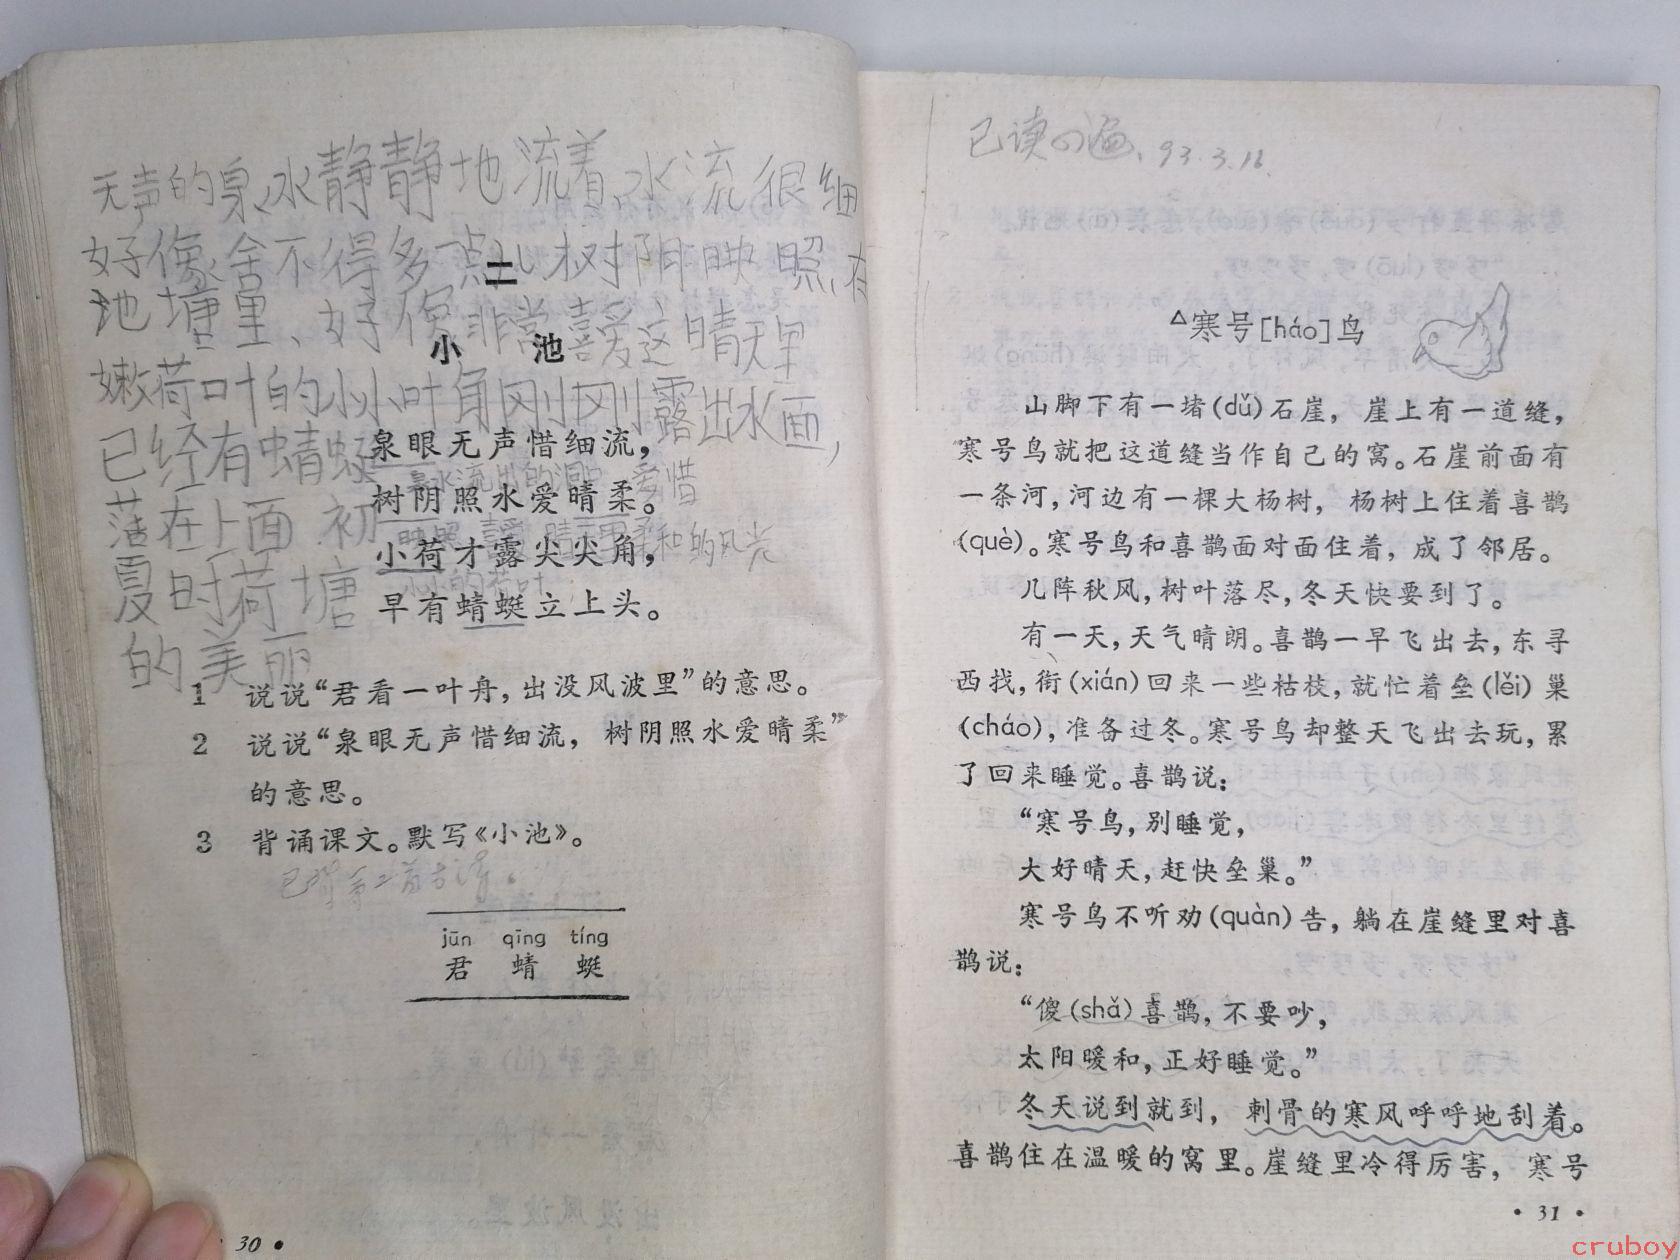 无声的泉水静静地流着,水流很细
好像舍不得多一点儿树阴映照在
池塘里、好像非常喜爱这晴天里
嫩荷叶的小小叶角刚刚露出水面,
已经有蜻蜓
落在上面 初
夏时荷塘
的美丽
二
小 池
泉眼无声惜细流,
泉水流出的洞口 爱惜
树阴照水爱晴柔。
映照 喜爱 晴天里柔和的风光
小荷才露尖尖角,
小小的荷叶
早有蜻蜓立上头。
1 说说“君看一叶舟,出没风波里”的意思。
2 说说“泉眼无声惜细流, 树阴照水爱晴柔”
的意思。
3 背诵课文。默写《小池》。
已背第二首古诗。
jūn qīng tíng
君 蜻 蜓
· 30 ·
已读四遍、93.3.18.
△寒号[háo]鸟
山脚下有一堵(dǔ)石崖, 崖上有一道缝,
寒号鸟就把这道缝当作自己的窝。石崖前面有
一条河,河边有一棵大杨树, 杨树上住着喜鹊
(què)。寒号鸟和喜鹊面对面住着, 成了邻居。
几阵秋风,树叶落尽,冬天快要到了。
有一天,天气晴朗。喜鹊一早飞出去,东寻
西找,衔(xián)回来一些枯枝,就忙着垒(lěi)巢
(cháo),准备过冬。寒号鸟却整天飞出去玩,累
了回来睡觉。喜鹊说:
“寒号鸟,别睡觉,
大好晴天,赶快垒巢。”
寒号鸟不听劝(quàn)告, 躺在崖缝里对喜
鹊说:
“傻(shǎ)喜鹊,不要吵,
太阳暖和,正好睡觉。”
冬天说到就到, 刺骨的寒风呼呼地刮着。
喜鹊住在温暖的窝里。崖缝里冷得厉害, 寒号
· 31 ·
cruboy